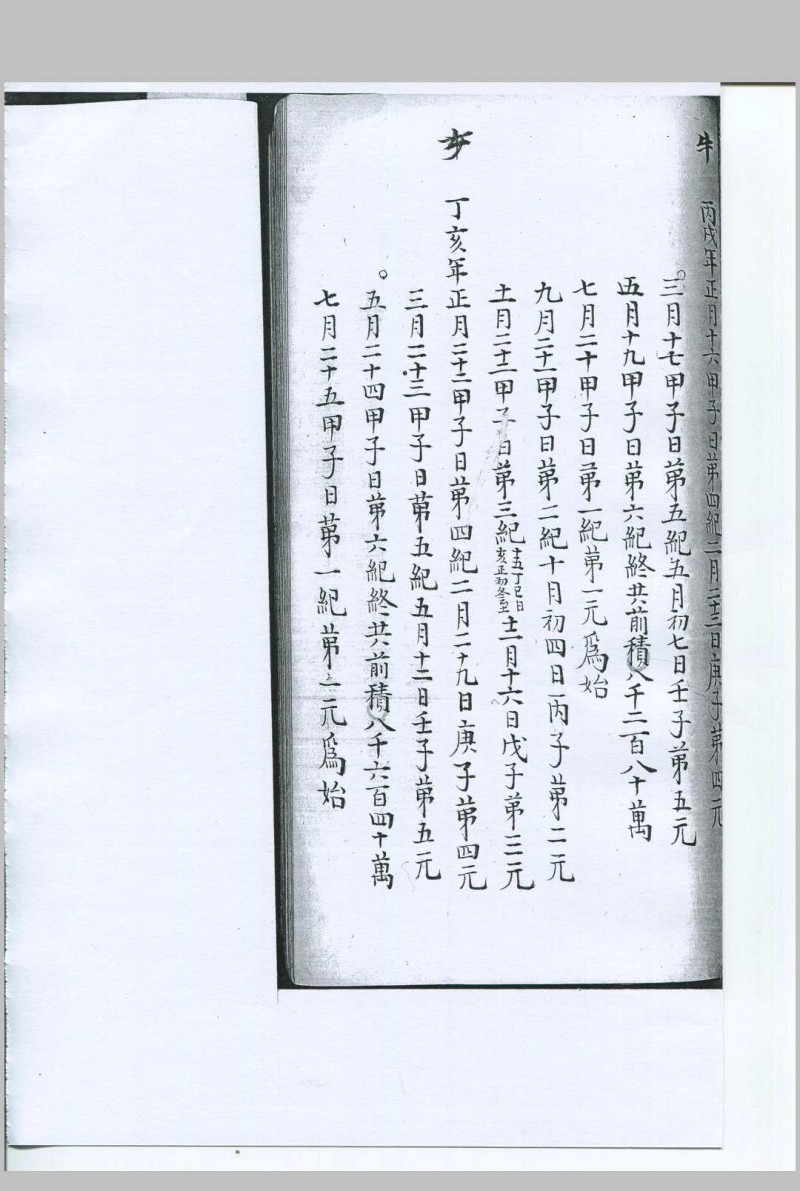 牛
丙戌年正月十六甲子日第四紀二月二十三日庚子第四元
三月十七甲子日第五紀五月初七日壬子第五元
五月十九甲子日第六紀終共前積八千二百八十萬
七月二十甲子日第一紀第一元爲始
九月二十一甲子日第二紀十月初四日丙子第二元
十一月二十二甲子日第三紀十五丁巳日亥正初冬至十二月十六日戊子第三元
丁亥年正月二十二甲子日第四紀二月二十九日庚子第四元
三月二十三甲子日第五紀五月十二日壬子第五元
五月二十四甲子日第六紀終共前積八千六百四十萬
七月二十五甲子日第一紀第一元爲始